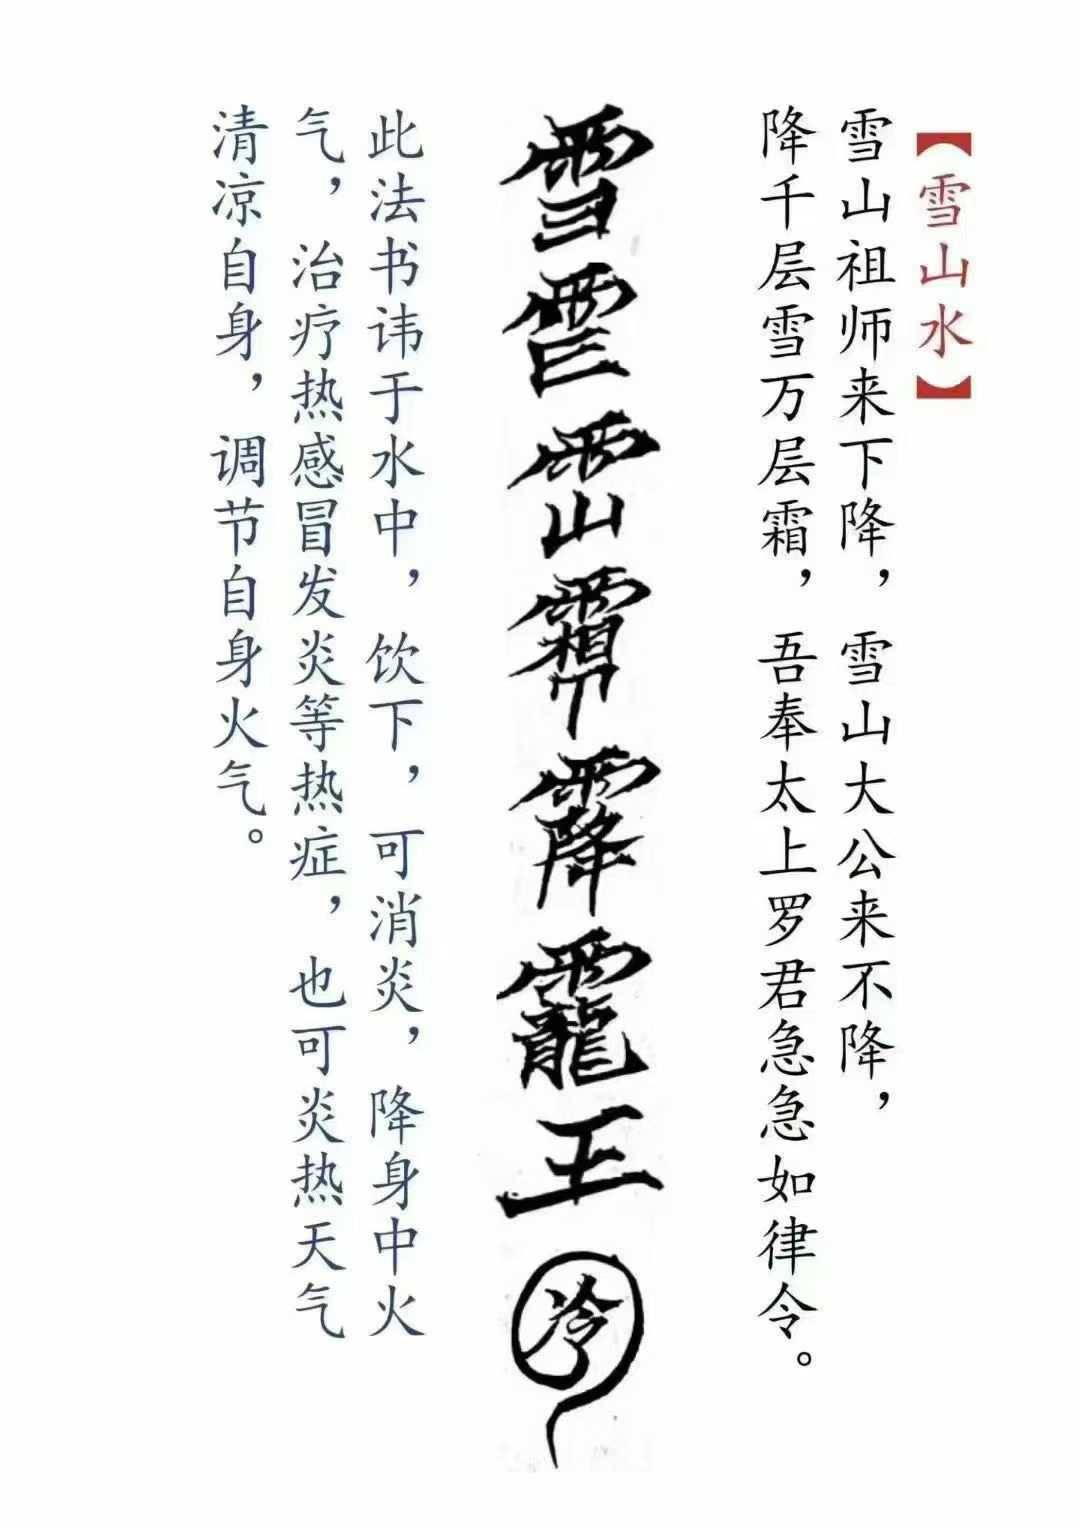 【雪山水】
雪山祖师来下降，雪山大公来不降，
降千层雪万层霜，吾奉太上罗君急急如律令。
王
冷
此法书讳于水中，饮下，可消炎，降身中火
气，治疗热感冒发炎等热症，也可炎热天气
清凉自身，调节自身火气。